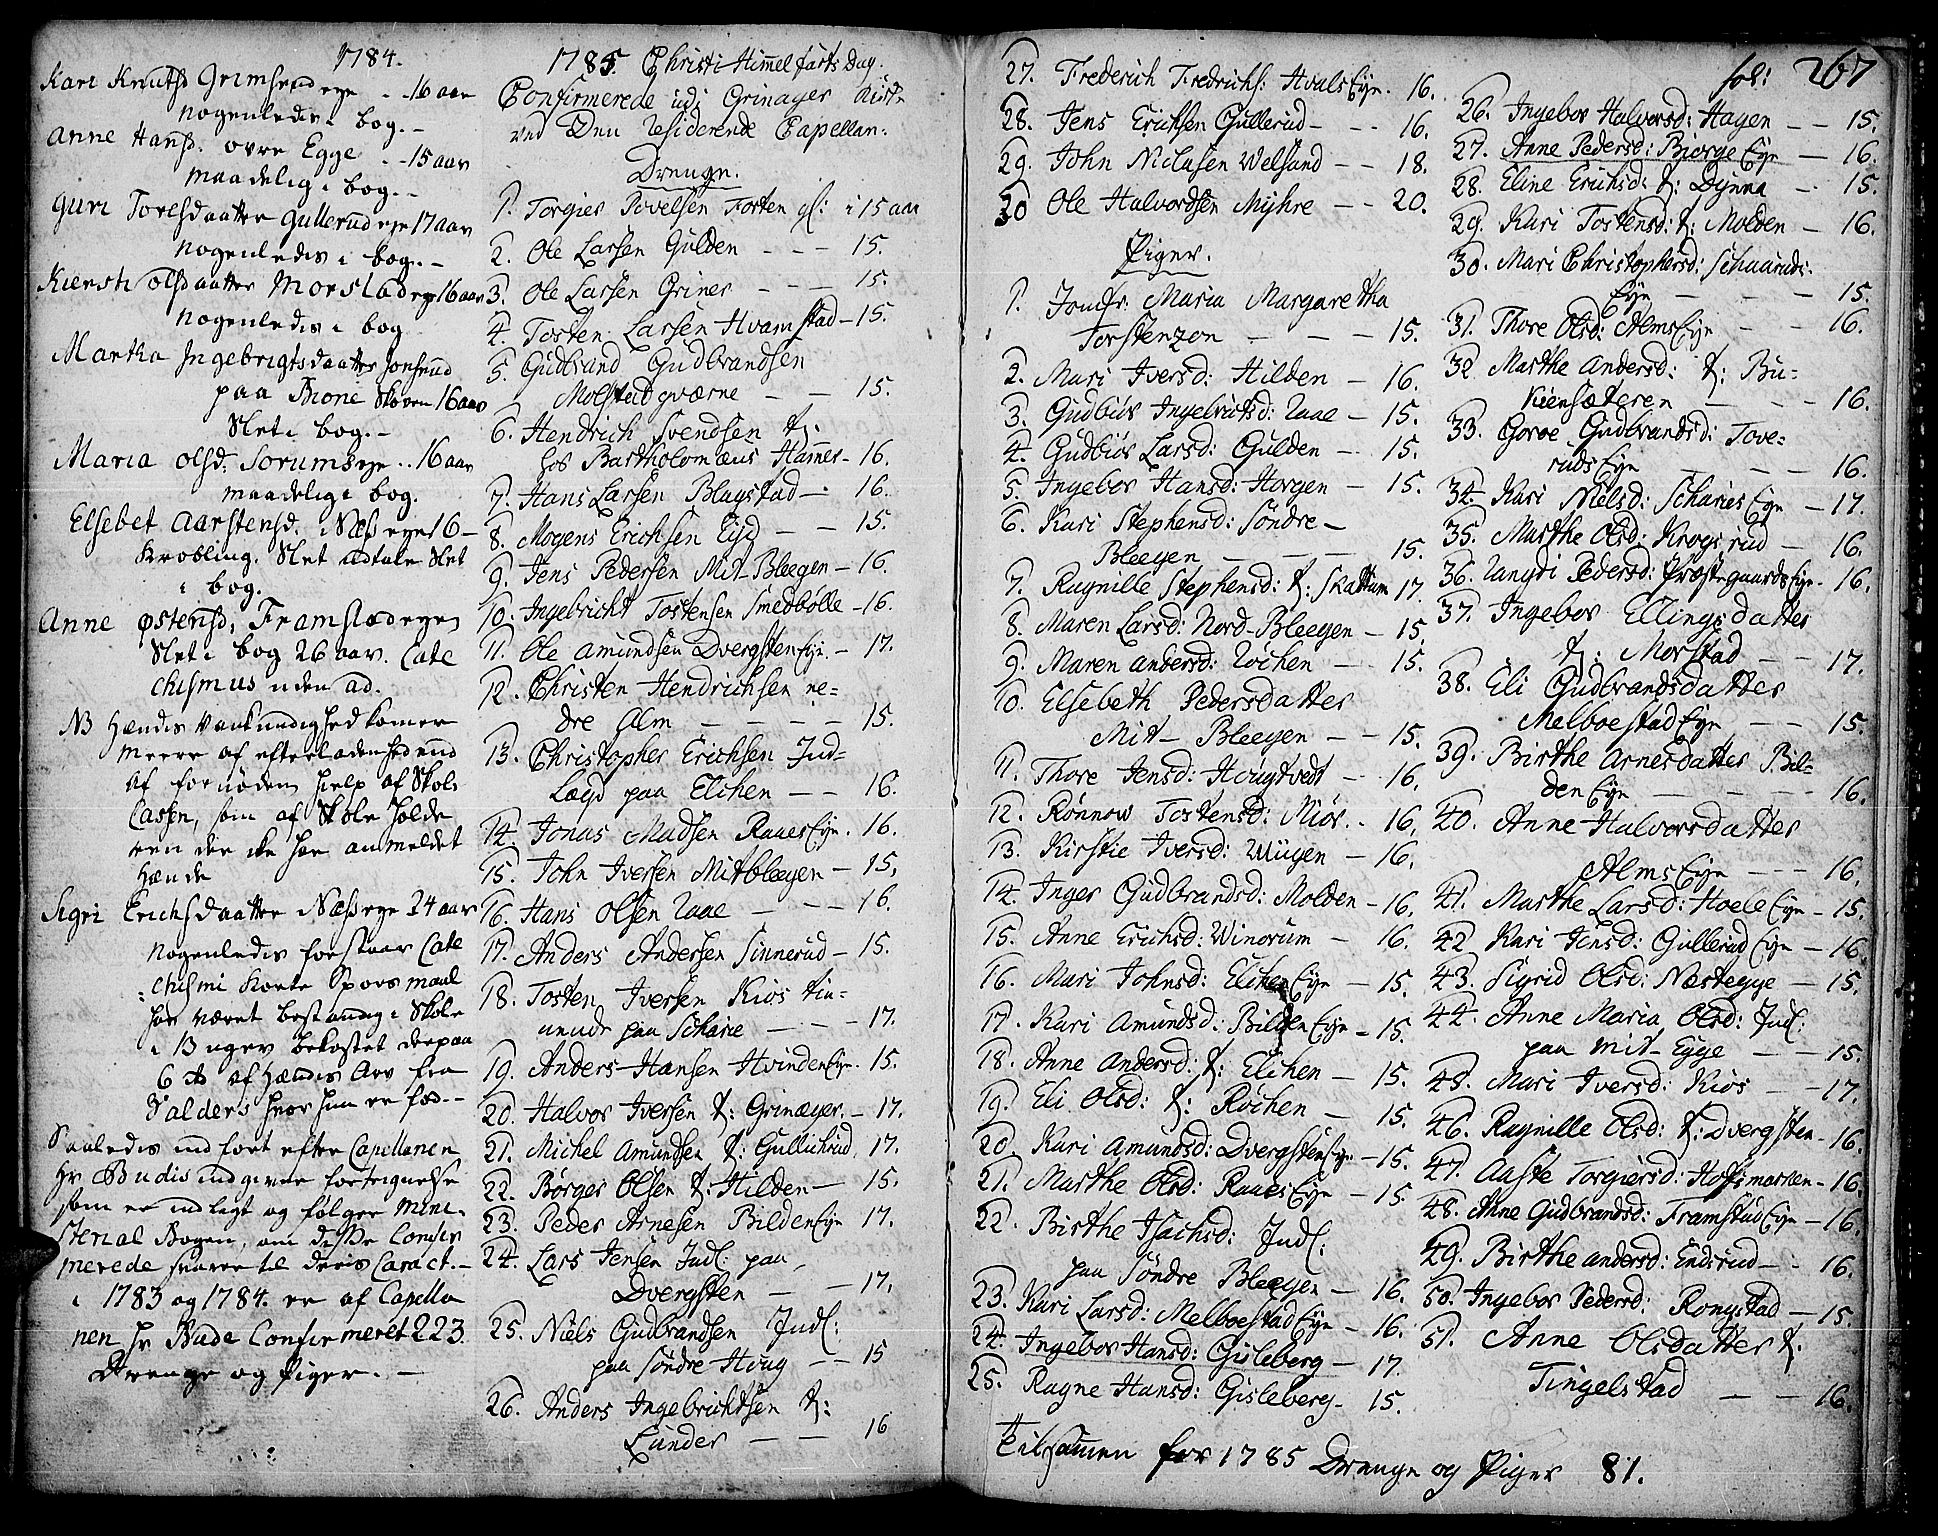 1784.
Kari Knutsd Grimsrud eye - - 16 aar
nogenledis i bog. -
Anne Hansd. øvre Egge - - 15 aar
maadelig i bog. -
Guri Toresdaatter Gullerud eye 17 aar
nogenledis i bog. -
Kiersti Olsdaatter Morstad eye 16 aar
nogenledis i bog
Martha Ingebrigtsdaatter Jonsrud
paa Brone Skoven 16 aar
Slet i bog. -
Maria Olsd. Sorums eye .. 16 aar
maadelig i bog.
Elsebet Aarstensd. Næss eye 16 -
Krobling. Slet udtale Slet
i bog.
Anne Østensd, Framstad eye
Slet i bog 26 aar. Cate
chismus uden ad.
NB Hændis Vankundighed komer
meere af efterladenhed end
af fornøden hielp af Skole
Cassen, som af Skole holde
ren der ike har anmeldet
Hænde
Sigri Erichsdaatter Næss eye 24 aar
nogenledis forstaar Cate
chismi korte Spørs maal
har været bestandig i Skole
i 13 uger bekostet derpaa
6 rd af Hændis Arv fra
Valders hvor hun er fød. -
Saaledis indført efter Capellanen
Hr Budis indgivne fortegnelse
som er indlagt og følger Mini-
sterial Bogen, om disse Confir
merede svarer til deris Caract. -
i 1783 og 1784. er af Capella
nen Hr Bude Confirmeret 223.
Drenge og Piger. -
1785. Christi Himmelfarts Dag.
Confirmerede udi Grinager Kirke
ved Den residerende Capellan.
Drenge.
1. Torgier Povelsen Forten gl: i 15 aar
2. Ole Larsen Gulden - - - 15.
3. Ole Larsen Griner - - - 15.
4. Tosten Larsen Hvamstad - 15.
5. Gudbrand Gudbrandsen
Molstad qværne - - 15.
6. Hendrich Svendsen t:
hos Bartholomæus Hammer - 16.
7. Hans Larsen Blagstad - 16.
8. Mogens Erichsen Eid - - 15.
9. Jens Pedersen Mit-Bleegen - 16.
10. Ingebricht Tostensen Smedbølle - 16.
11. Ole Amundsen Dvergsten Eye. - 17.
12. Christen Hendrichsen ne-
dre Alm - - - - 15.
13. Christopher Erichsen Ind-
lægd paa Elchen - - 16.
14. Jonas Madsen Raaes Eye. 16.
15. John Iversen Mitbleegen - 15.
16. Hans Olsen Aaae - - - 16.
17. Anders Andersen Sinnerud - 15.
18. Tosten Iversen Kiøs tie-
nende paa Scharie - - - 17.
19. Anders Hansen Hvinden Eye. 15.
20. Halvor Iversen t: Grinager - 17.
21. Michel Amundsen t: Gullichrud. 17.
22. Børger Olsen t: Hilden - 15.
23. Peder Arnesen Bilden Eye 17.
24. Lars Jensen Indl. paa
Dvergsten - - 17.
25. Niels Gudbrandsen Indl:
paa Søndre Houg - - 15
26. Anders Ingebrichtsen t:
Lunder - - - 16
27. Frederich Fredrichs: Hvals Eye. 16.
28. Jens Erichsen Gullerud - - - 16.
29. John Nilusen Welsand - - 18.
30 Ole Halvordsen Myhre - - 20.
Piger.
1. Jomfr. Maria Margaretha
Torstenzon - - - 15.
2. Mari Iversd: Hilden - 16.
3. Gudbiør Ingebrictsd: Aaae - 15.
4. Gudbiør Larsd: Gulden - 15.
5. Ingebor Hansd: Horgen - 15.
6. Kari Stephensd: Søndre -
Bleegen - - - 15.
7. Ragnille Stephensd: t: Skattum 17.
8. Maren Larsd: Nord-Bleegen - 15.
9. Maren Andersd: Rochen - - 15.
10. Elsebeth Pedersdatter
Mit-Bleegen - - 15.
11. Thore Jensd: Hougtvedt - - 16.
12. Rønnow Tostensd: Niør. - 16.
13. Kirstie Iversd: Wiigen - 16.
14. Inger Gudbrandsd: Molden - 16.
15. Anne Erichsd: Winorum - 16.
16. Mari Johnsd: Elchen Eye - 15.
17. Kari Amundsd: Bilden Eye - 15.
18. Anne Andersd: t: Elchen - 15.
19. Eli Olsd: t: Røchen - 15.
20. Kari Amundsd: Dvergsten Eye - 15.
21. Marthe Olsd: Raaes Eye - 15.
22. Birthe Isachsd: Indl:
paa Søndre Bleegen - 16.
23. Kari Larsd: Melboestad Eye - 16.
24. Ingebor Hansd: Gisleberg - 17.
25. Ragne Hansd: Gisleberg - 15.
fol: 267
26. Ingebor Halvorsd: Hagen - - 15.
27. Anne Pedersd: Biørge Eye - 16.
28. Eline Erichsd: t: Dynna - - 15.
29. Kari Tostensd: t: Molden - 16.
30. Mari Christophersd: Schaaruds:
Eye - - - 15.
31. Thore Olsd: Alms Eye - - 16.
32 Marthe Andersd: t: Bu-
kiensæteren - - - 16.
33. Goroe Gudbrandsd: Tove-
ruds Eye - - - 16.
34. Kari Nielsd: Scharies Eye - 17.
35. Marthe Olsd: Krogsrud - 16.
36. Rangdi Pedersd: Præstegaards Eye - 16.
37. Ingebor Ellingsdatter
t: Morstad - - 17.
38. Eli Gudbrandsdatter
Melboestad Eye - - 15.
39. Birthe Arnesdatter Bil-
den Eye - - - 16.
40. Anne Halvorsdatter
Alms Eye - - - 16.
41. Marthe Larsd: Hoele Eye - 15.
42 Kari Jensd: Gullerud Eye - 16.
43. Sigrid Olsd: Næstegge - 15.
44. Anne Maria Olsd: Indl:
paa Mit-Egge - - 15.
45. Mari Iversd: Kiøs - - 17.
46. Ragnille Olsd: t: Dvergsten - 16.
47. Aaste Torgiersd: Hoffsmarken - 16.
48. Anne Gudbrandsd: Framstad Eye - 16.
49. Birthe Andersd: Endrud - - 16.
50. Ingebor Pedersd: Rongstad - 15.
51. Anne Olsdatter t:
Tingelstad - - 16.
Tilsamen for 1785 Drenge og Piger 81.